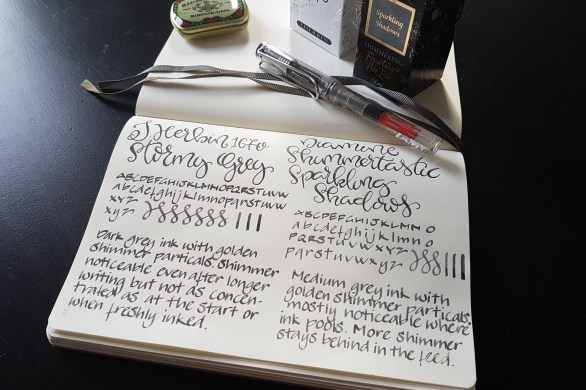 J Herbin 1670
Stormy Grey
ABCDEFGHIJKLMNOPQRSTUVW
abcdefghijklmnopqrstuvw
XYZ
xyz
Dark grey ink with golden
shimmer particals. Shimmer
noticeable even after longer
writing but not as concen-
trated as at the start or
when freshly inked.
Diamine
Shimmertastic
Sparkling
Shadows
ABCDEFGHIJKLMNO
abcdefghijklmno
PQRSTUVWXYZ
pqrstuvwxyz
Medium grey ink with
golden shimmer particals,
mostly noticeable where
ink pools. More shimmer
stays behind in the feed.
Sparkling
Shadows
SHIMMERING
Fountain
Pen Ink
J. HERBIN
LAMY